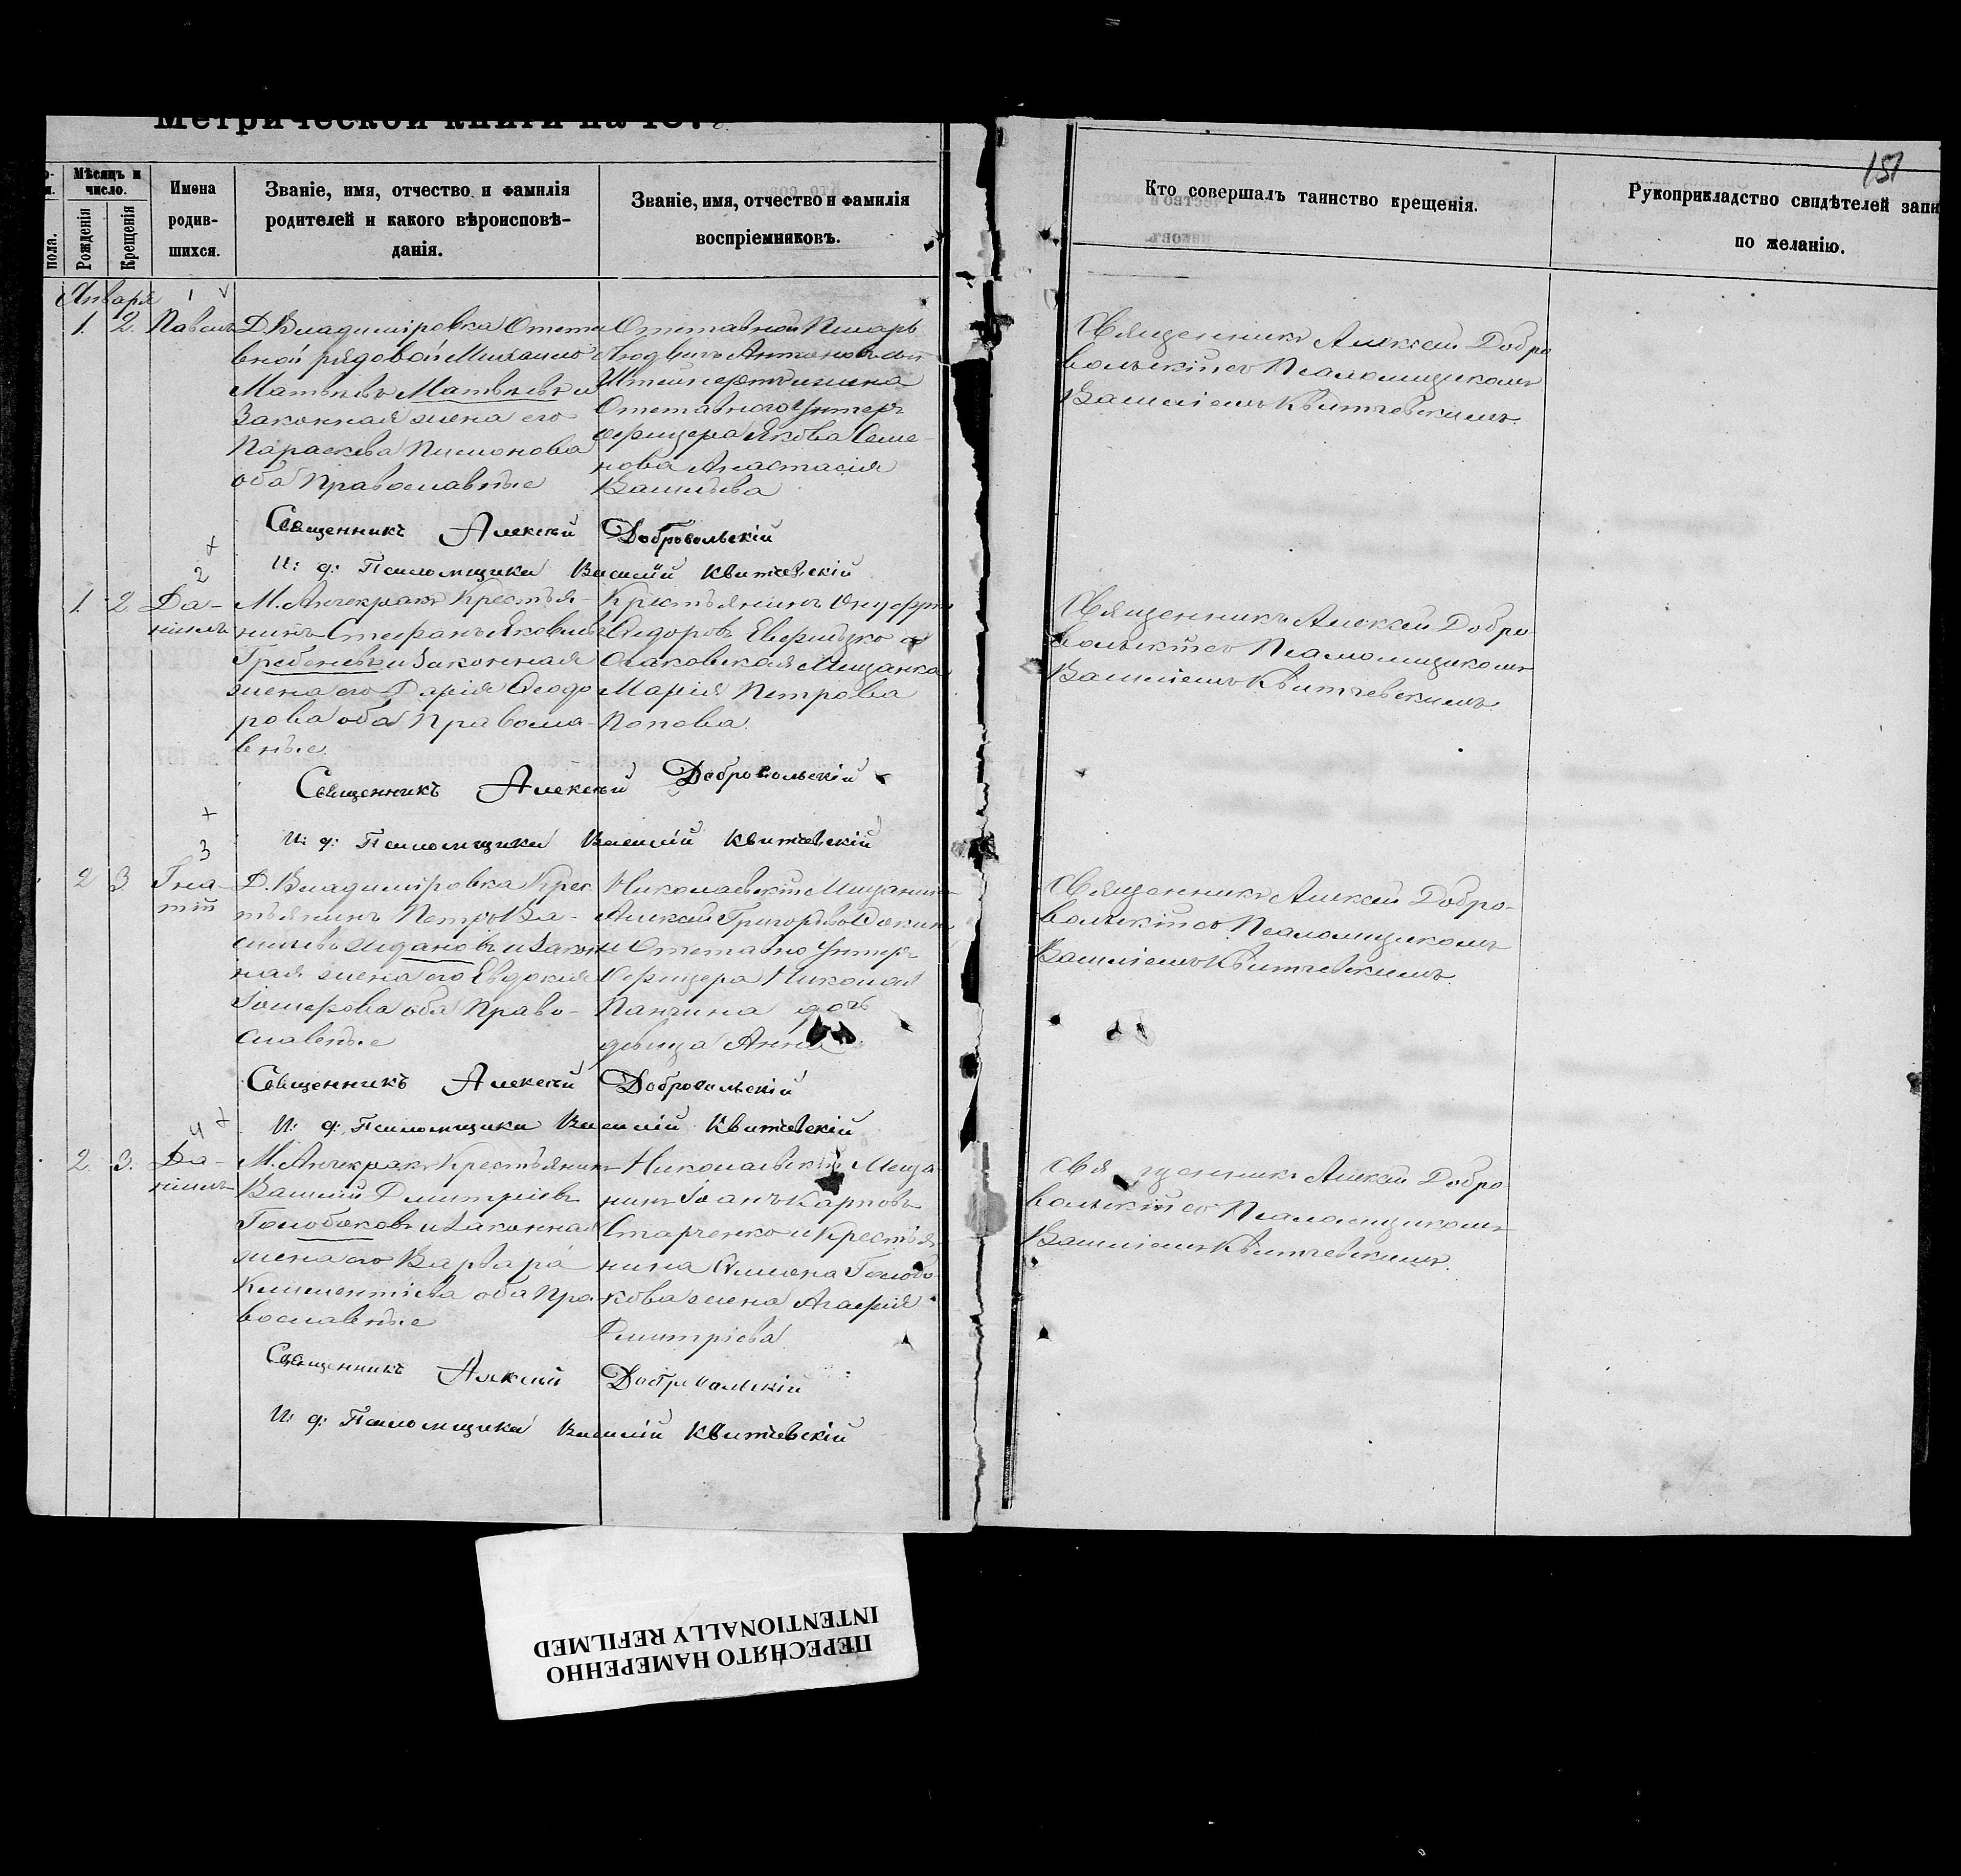 Метрической книги на 187
Мѣсяцъ и
число.
пола.
Рожденія
Крещенія
Имена
родив-
шихся.
Званіе, имя, отчество и фамилія
родителей и какого вѣроисповѣ-
данія.
Званіе, имя, отчество и фамилія
воспріемниковъ.
Января
1
1. 2. Павелъ
Д. Владиміровка Отста
вной рядовой Михаилъ
Матвѣевъ Матвѣевъ и
Законная жена его
Параскева Пименова
оба Православные
Отставной Писарь
Людвигъ Антоновъ
жена
Отставного Унтеръ
офицера Якова Семе-
нова Анастасія
Васильева
Священникъ Алексѣй Добровольскій
И: д: Псаломщика Василій Квитчевскій
2
1. 2. Да-
ніилъ
М. Анчекракъ Крестья-
нинъ Стефанъ Яковлевъ
Гребеневъ и Законная
жена его Дарія Ѳеодо
рова оба Правосла-
вные.
Крестьянинъ Онуфрій
Сидоровъ и
Очаковская Мещанка
Марія Петрова
Попова.
Священникъ Алексѣй Добровольскій
И: д: Псаломщика Василій Квитчевскій
3
2 3 Игна-
тій
Д. Владиміровка Крес
тьянинъ Петръ Ва-
сильевъ Ждановъ и Закон
ная жена его Евдокія
Іосифова оба Право-
славные
Николаевскій Мещанинъ
Алексѣй Григорьевъ
и Отставно Унтеръ
Офицера Николая
Панчина дочь
дѣвица Анна
Священникъ Алексѣй Добровольскій
И: д: Псаломщика Василій Квитчевскій
4
2. 3. Да-
ніилъ
М. Анчекракъ Крестьянинъ
Василій Дмитріевъ
Голобоковъ и Законная
жена его Варвара
Климентіева оба Пра
вославные
Николаевскій Меща
нинъ Іоанъ Карповъ
Старченко и Крестья
нина Симона Голобо
кова жена Агафія
Дмитріева
Священникъ Алексѣй Добровольскій
И: д: Псаломщика Василій Квитчевскій
151
Кто совершалъ таинство крещенія.
Рукоприкладство свидѣтелей запи
по желанію.
Священникъ Алексѣй Добро
вольскій съ Псаломщикомъ
Василіемъ Квитчевскимъ.
Священникъ Алексѣй Добро
вольскій съ Псаломщикомъ
Василіемъ Квитчевскимъ.
Священникъ Алексѣй Добро-
вольскій съ Псаломщикомъ
Василіемъ Квитчевскимъ.
Священникъ Алексѣй Добро
вольскій съ Псаломщикомъ
Василіемъ Квитчевскимъ.
ПЕРЕСНЯТО НАМЕРЕННО
INTENTIONALLY REFILMED